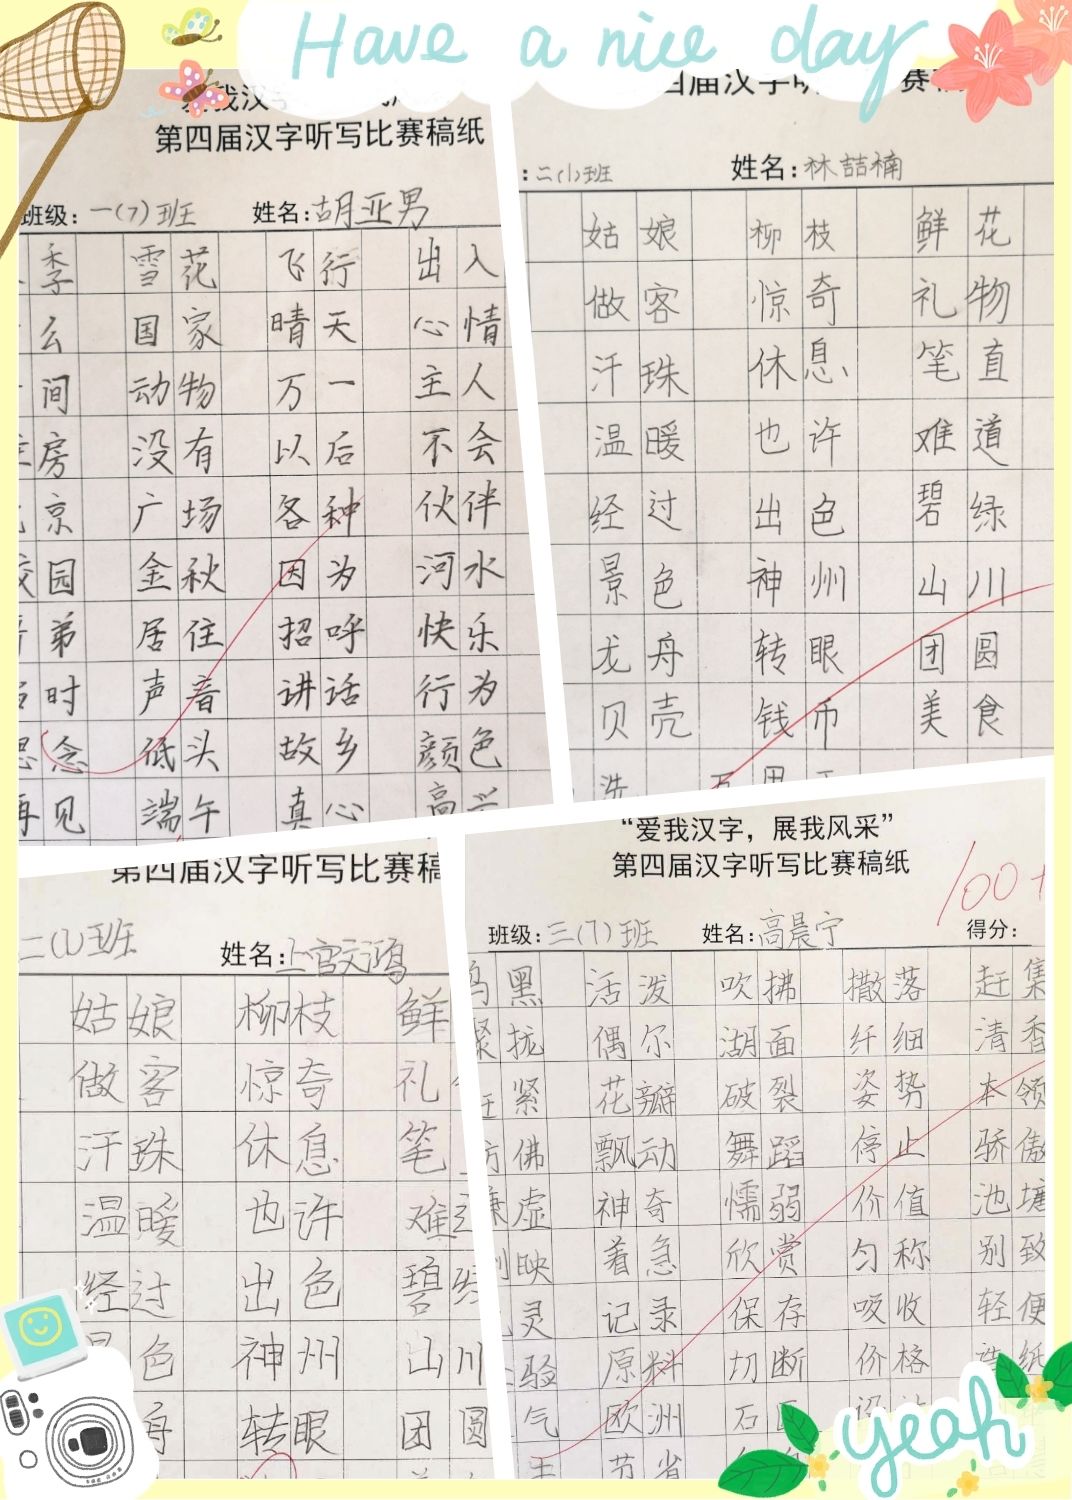 Have a nice day
第四届汉字听写比赛稿纸
班级：一(7)班 姓名：胡亚男
季 雪花 飞行 出入
么 国家 晴天 心情
间 动物 万一 主人
房 没有 以后 不会
京 广场 各种 伙伴
园 金秋 因为 河水
弟 居住 招呼 快乐
时 声音 讲话 行为
念 低头 故乡 颜色
再见 端午 真心 高兴
四届汉字听
：二(1)班 姓名：林喆楠
姑娘 柳枝 鲜花
做客 惊奇 礼物
汗珠 休息 笔直
温暖 也许 难道
经过 出色 碧绿
景色 神州 山川
龙舟 转眼 团圆
贝壳 钱币 美食
洗
第四届汉字听写比赛稿
二(1)班 姓名：上官文鸿
姑娘 柳枝 鲜
做客 惊奇 礼
汗珠 休息 笔
温暖 也许 难道
经过 出色 碧绿
色 神州 山川
舟 转眼 团圆
“爱我汉字，展我风采”
第四届汉字听写比赛稿纸
100+
班级：三(7)班 姓名：高晨宁 得分：
黑 活泼 吹拂 撒落 赶集
聚拢 偶尔 湖面 纤细 清香
赶紧 花瓣 破裂 姿势 本领
仿佛 飘动 舞蹈 停止 骄傲
谦虚 神奇 懦弱 价值 池塘
映 着急 欣赏 匀称 别致
灵 记录 保存 吸收 轻便
验 原料 切断 价格 造纸
气 欧洲 石匠 设计
节省
yeah